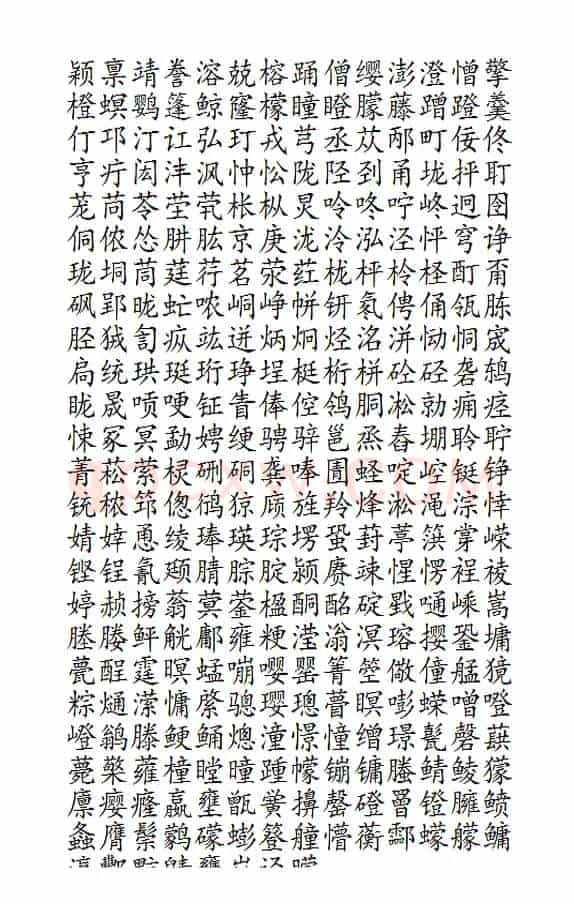 颖禀靖誊溶兢榕踊僧缨澎澄憎擎
橙螟鹦篷鲸窿檬瞳瞪朦藤蹭蹬羹
仃邛汀讧弘玎戎芎丞苁邴町佞佟
亨疔闳沣沨忡忪陇陉刭甬垅抨耵
茏苘苓茔茕枨枞炅呤咚咛峂迥囹
侗侬怂肼肱京庚泷泠泓泾怦穹诤
珑垌茼莛荇茗荥荭栊枰柃柽酊甭
砜郢昽虻哝峒峥帡钘氡俜俑瓴胨
胫狨訇疭竑迸炳炯烃洺洴恸恫宬
扃统珙珽珩琤埕梃桁栟硁硎砻鸫
眬晟唝哽钲眚俸倥鸰胴凇勍痈痉
悚冢冥勐娉绠骋骍邕烝舂堋聆聍
菁菘萦梫硎硐龚唪圊蛏啶崆铤铮
铳秾筇偬鸻猄庼旌羚烽淞渑淙悻
婧婞恿绫琫瑛琮塄蛩葑葶蓂掌嵘
铿锃氰颋腈腙腚颍赓竦惺愣裎祾
婷赪搒蓊蓂蓥楹酮酩碇戥嗵嵊嵩
塍媵鲆觥鄘雍粳滢滃溟瑢撄銎墉
甍酲霆暝蜢嘣嘤罂箐箜儆僮艋獍
粽熥潆慵綮骢璎璁瞢瞑嘭蝾噌噔
嶝鹟滕鲠鲬熜潼憬憧缯璟氄磬蕻
薨檠蕹橦瞠曈踵幪镚镛螣鲭鲮獴
廪瘿癃嬴壅甑黉擤罄磴罾镫臃鲼
螽膺鬃鹲礞蟛簦艟懵蘅酃蠓艨鳙